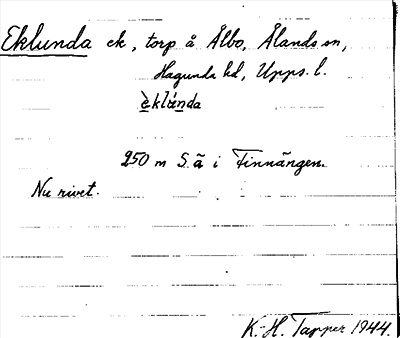 Eklunda ek, torp å Ålbo, Ålands sn,
Hagunda hd, Upps. l.
èklúnda
250 m S. ä i Finnängen.
Nu rivet.
K.-H. Tapper 1944.